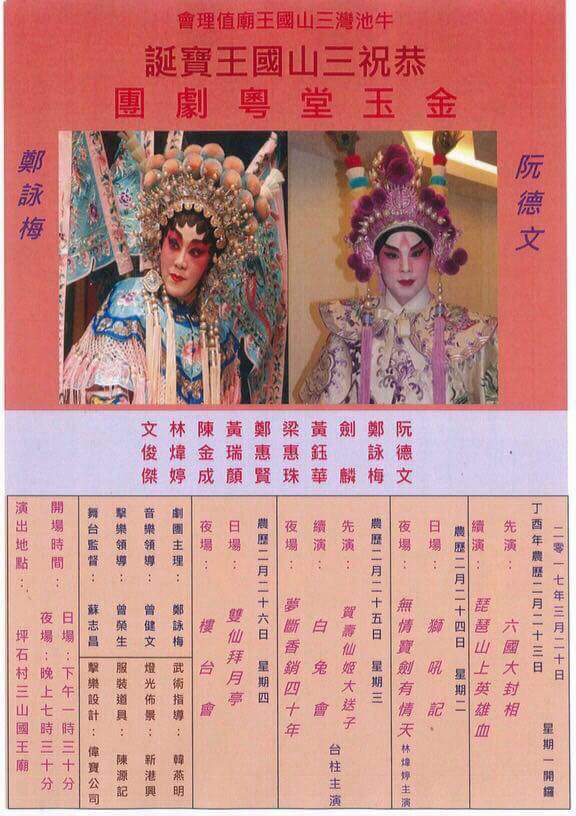 牛池灣三山國王廟值理會
恭祝三山國王寶誕
金玉堂粵劇團
阮德文
鄭詠梅
阮德文
鄭詠梅
劍麟
黃鈺華
梁惠珠
鄭惠賢
黃瑞顏
陳金成
林煒婷
文俊傑
二零一七年三月二十日
星期一開鑼
丁酉年農歷二月二十三日
先演：六國大封相
續演：琵琶山上英雄血
農歷二月二十四日 星期二
日場：獅吼記
夜場：無情寶劍有情天
林煒婷主演
農歷二月二十五日 星期三
先演：賀壽仙姬大送子
續演：白兔會
台柱主演
夜場：夢斷香銷四十年
農歷二月二十六日 星期四
日場：雙仙拜月亭
夜場：樓台會
劇團主理：鄭詠梅
音樂領導：曾健文
擊樂領導：曾榮生
舞台監督：蘇志昌
武術指導：韓燕明
燈光佈景：新港興
服裝道具：陳源記
擊樂設計：偉寶公司
開場時間：日場：下午一時三十分
夜場：晚上七時三十分
演出地點：坪石村三山國王廟